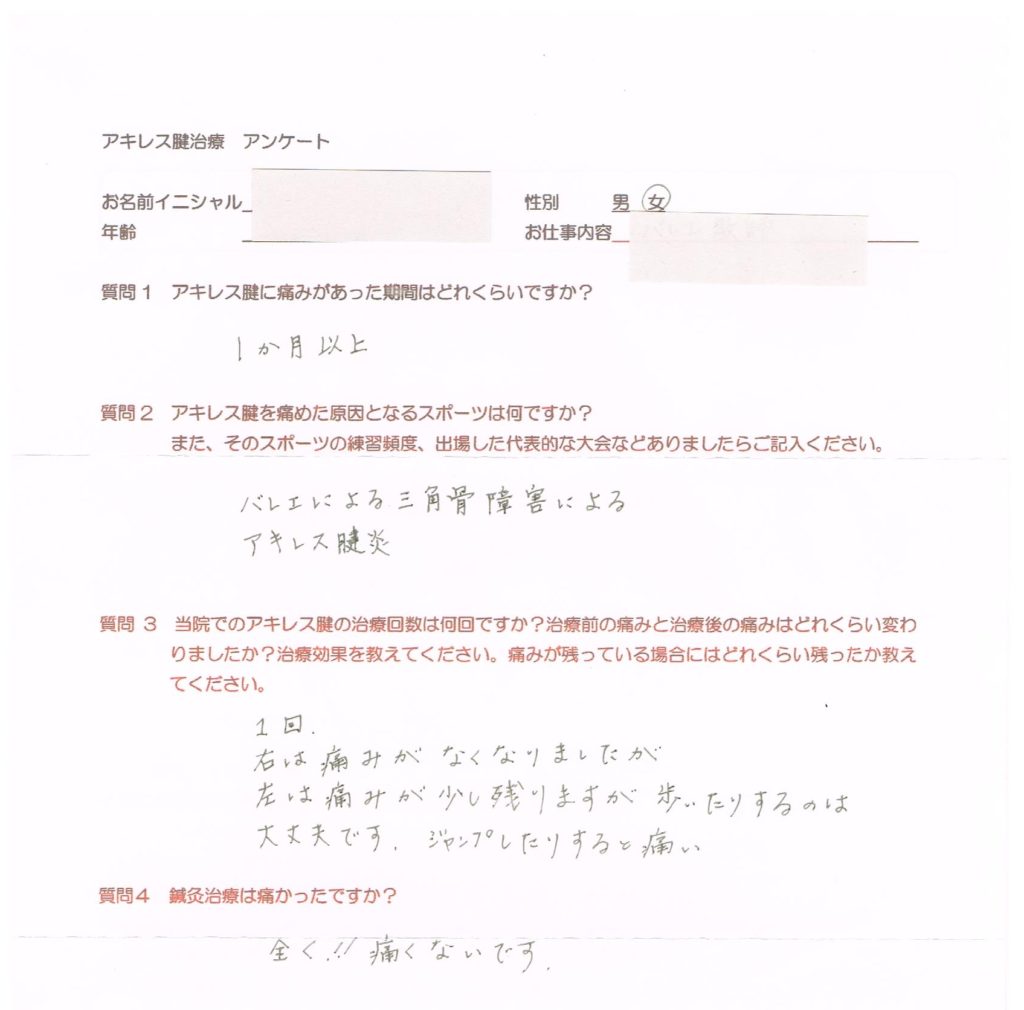 アキレス腱治療 アンケート
お名前イニシャル 性別 男 女
年齢 お仕事内容
質問1 アキレス腱に痛みがあった期間はどれくらいですか?
1か月以上
質問2 アキレス腱を痛めた原因となるスポーツは何ですか?
また、そのスポーツの練習頻度、出場した代表的な大会などありましたらご記入ください。
バレエによる三角骨障害による
アキレス腱炎
質問 3 当院でのアキレス腱の治療回数は何回ですか?治療前の痛みと治療後の痛みはどれくらい変わ
りましたか?治療効果を教えてください。痛みが残っている場合にはどれくらい残ったか教え
てください。
1回.
右は痛みがなくなりましたが
左は痛みが少し残りますが歩いたりするのは
大丈夫です. ジャンプしたりすると痛い
質問4 鍼灸治療は痛かったですか?
全く!!痛くないです.